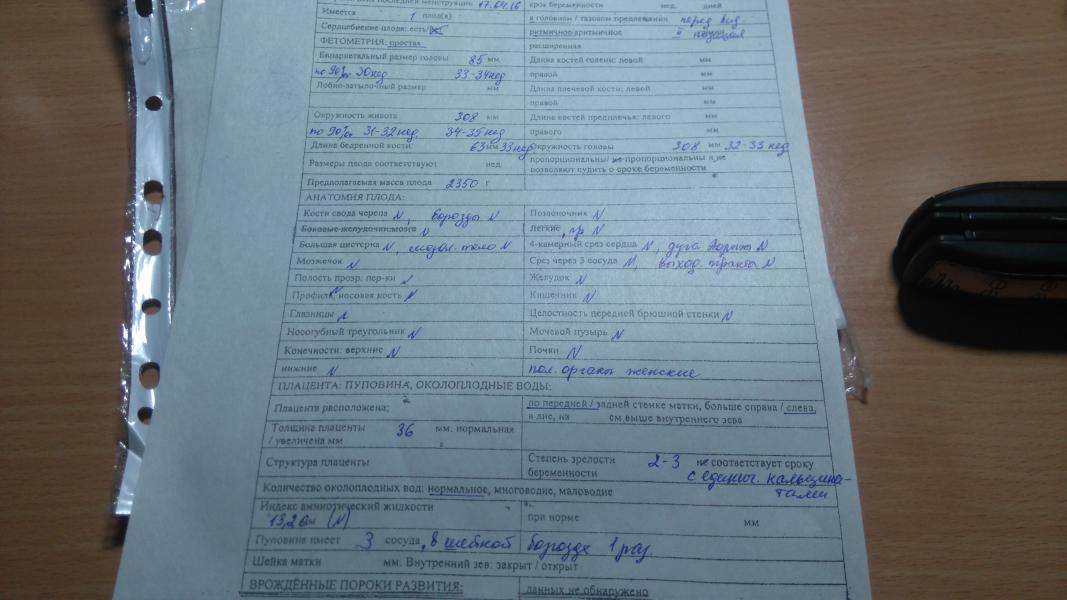 последней менструации 17.04.16 срок беременности нед. дней
Имеется 1 плод(а) в головном / тазовом предлежании перед. вид.
Сердцебиение плода: есть/нет ритмичное/аритмичное II позиция
ФЕТОМЕТРИЯ: простая расширенная
Бипариетальный размер головы 85 мм Длина костей голени: левой мм
по 90% 30нед 33-34нед правой мм
Лобно-затылочный размер мм Длина плечевой кости; левой мм
правой мм
Окружность живота 308 мм Длина костей предплечья: левого мм
по 90% 31-32 нед. 34-35 нед. правого мм
Длина бедренной кости: 63 мм 33 нед. Окружность головы 308 мм 32-33 нед
Размеры плода соответствуют нед. пропорциональны/ не пропорциональны и не
позволяют судить о сроке беременности
Предполагаемая масса плода 2350 г
АНАТОМИЯ ПЛОДА:
Кости свода черепа N, борозды N Позвоночник N
Боковые желудочки мозга N Легкие, N
Большая цистерна N, мозол. тело N 4-камерный срез сердца N, дуга аорты N
Мозжечок N Срез через 3 сосуда N, выход. тракты N
Полость прозр. пер-ки Желудок N
Профиль, носовая кость N Кишечник N
Глазницы N Целостность передней брюшной стенки N
Носогубный треугольник N Мочевой пузырь N
Конечности: верхние N Почки N
нижние N пол. органы женские
ПЛАЦЕНТА: ПУПОВИНА, ОКОЛОПЛОДНЫЕ ВОДЫ:
Плацента расположена; по передней / задней стенке матки, больше справа / слева,
в дне, на см.выше внутреннего зева
Толщина плаценты 36 мм. нормальная
/ увеличена мм
Структура плаценты Степень зрелости 2-3 не соответствует сроку
беременности с единич. кальцина-
тами
Количество околоплодных вод: нормальное, многоводие, маловодие
Индекс амниотической жидкости
13,2 см (N) при норме мм
Пуповина имеет 3 сосуда, в шейной борозде 1 раз.
Шейка матки мм. Внутренний зев: закрыт / открыт
ВРОЖДЁННЫЕ ПОРОКИ РАЗВИТИЯ: данных не обнаружено